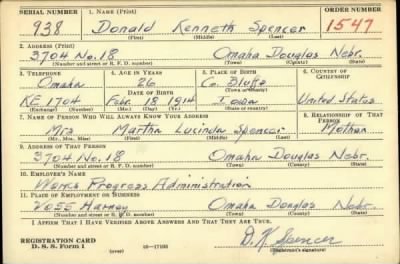 SERIAL NUMBER 1. NAME (Print) ORDER NUMBER
938 Donald Kenneth Spencer 1547
(First) (Middle) (Last)
2. ADDRESS (Print)
3704 No. 18 Omaha Douglas Nebr.
(Number and street or R. F. D. number) (Town) (County) (State)
3. TELEPHONE 4. AGE IN YEARS 5. PLACE OF BIRTH 6. COUNTRY OF CITIZENSHIP
Omaha 26 Co. Bluffs
DATE OF BIRTH (Town or county)
KE 1704 Feb. 18 1914 Iowa United States
(Exchange) (Number) (Mo.) (Day) (Yr.) (State or country)
7. NAME OF PERSON WHO WILL ALWAYS KNOW YOUR ADDRESS 8. RELATIONSHIP OF THAT PERSON
Mrs Martha Lucinda Spencer Mother
(Mr., Mrs., Miss) (First) (Middle) (Last)
9. ADDRESS OF THAT PERSON
3704 No. 18 Omaha Douglas Nebr.
(Number and street or R. F. D. number) (Town) (County) (State)
10. EMPLOYER'S NAME
Works Progress Administration
11. PLACE OF EMPLOYMENT OR BUSINESS
Harney Omaha Douglas Nebr.
(Number and street or R. F. D. number) (Town) (County) (State)
I AFFIRM THAT I HAVE VERIFIED ABOVE ANSWERS AND THAT THEY ARE TRUE.
D. K Spencer
REGISTRATION CARD
D. S. S. Form 1 (over) 16-17105 (Registrant's signature)